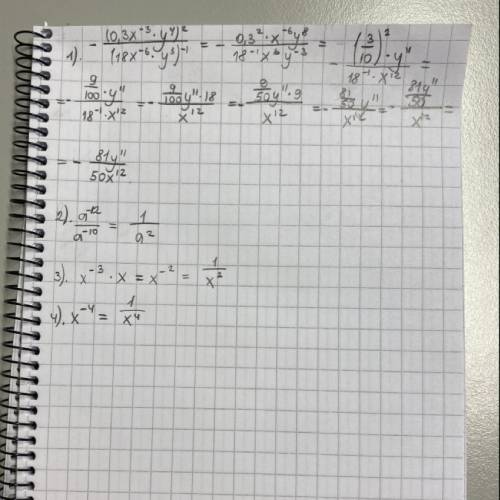 1). - (0,3x⁻³·y⁴)² / (18x⁻⁶·y³)⁻¹ = - 0,3²·x⁻⁶y⁸ / 18⁻¹x⁶y⁻³ = - (3/10)²·y¹¹ / 18⁻¹·x¹² =
= - 9/100·y¹¹ / 18⁻¹·x¹² = - 9/100 y¹¹·18 / x¹² = - 9/50 y¹¹·9 / x¹² = - 81/50 y¹¹ / x¹² = - 81y¹¹/50 / x¹² =
= - 81y¹¹ / 50x¹²
2). a⁻¹² / a⁻¹⁰ = 1 / a²
3). x⁻³·x = x⁻² = 1 / x²
4). x⁻⁴ = 1 / x⁴